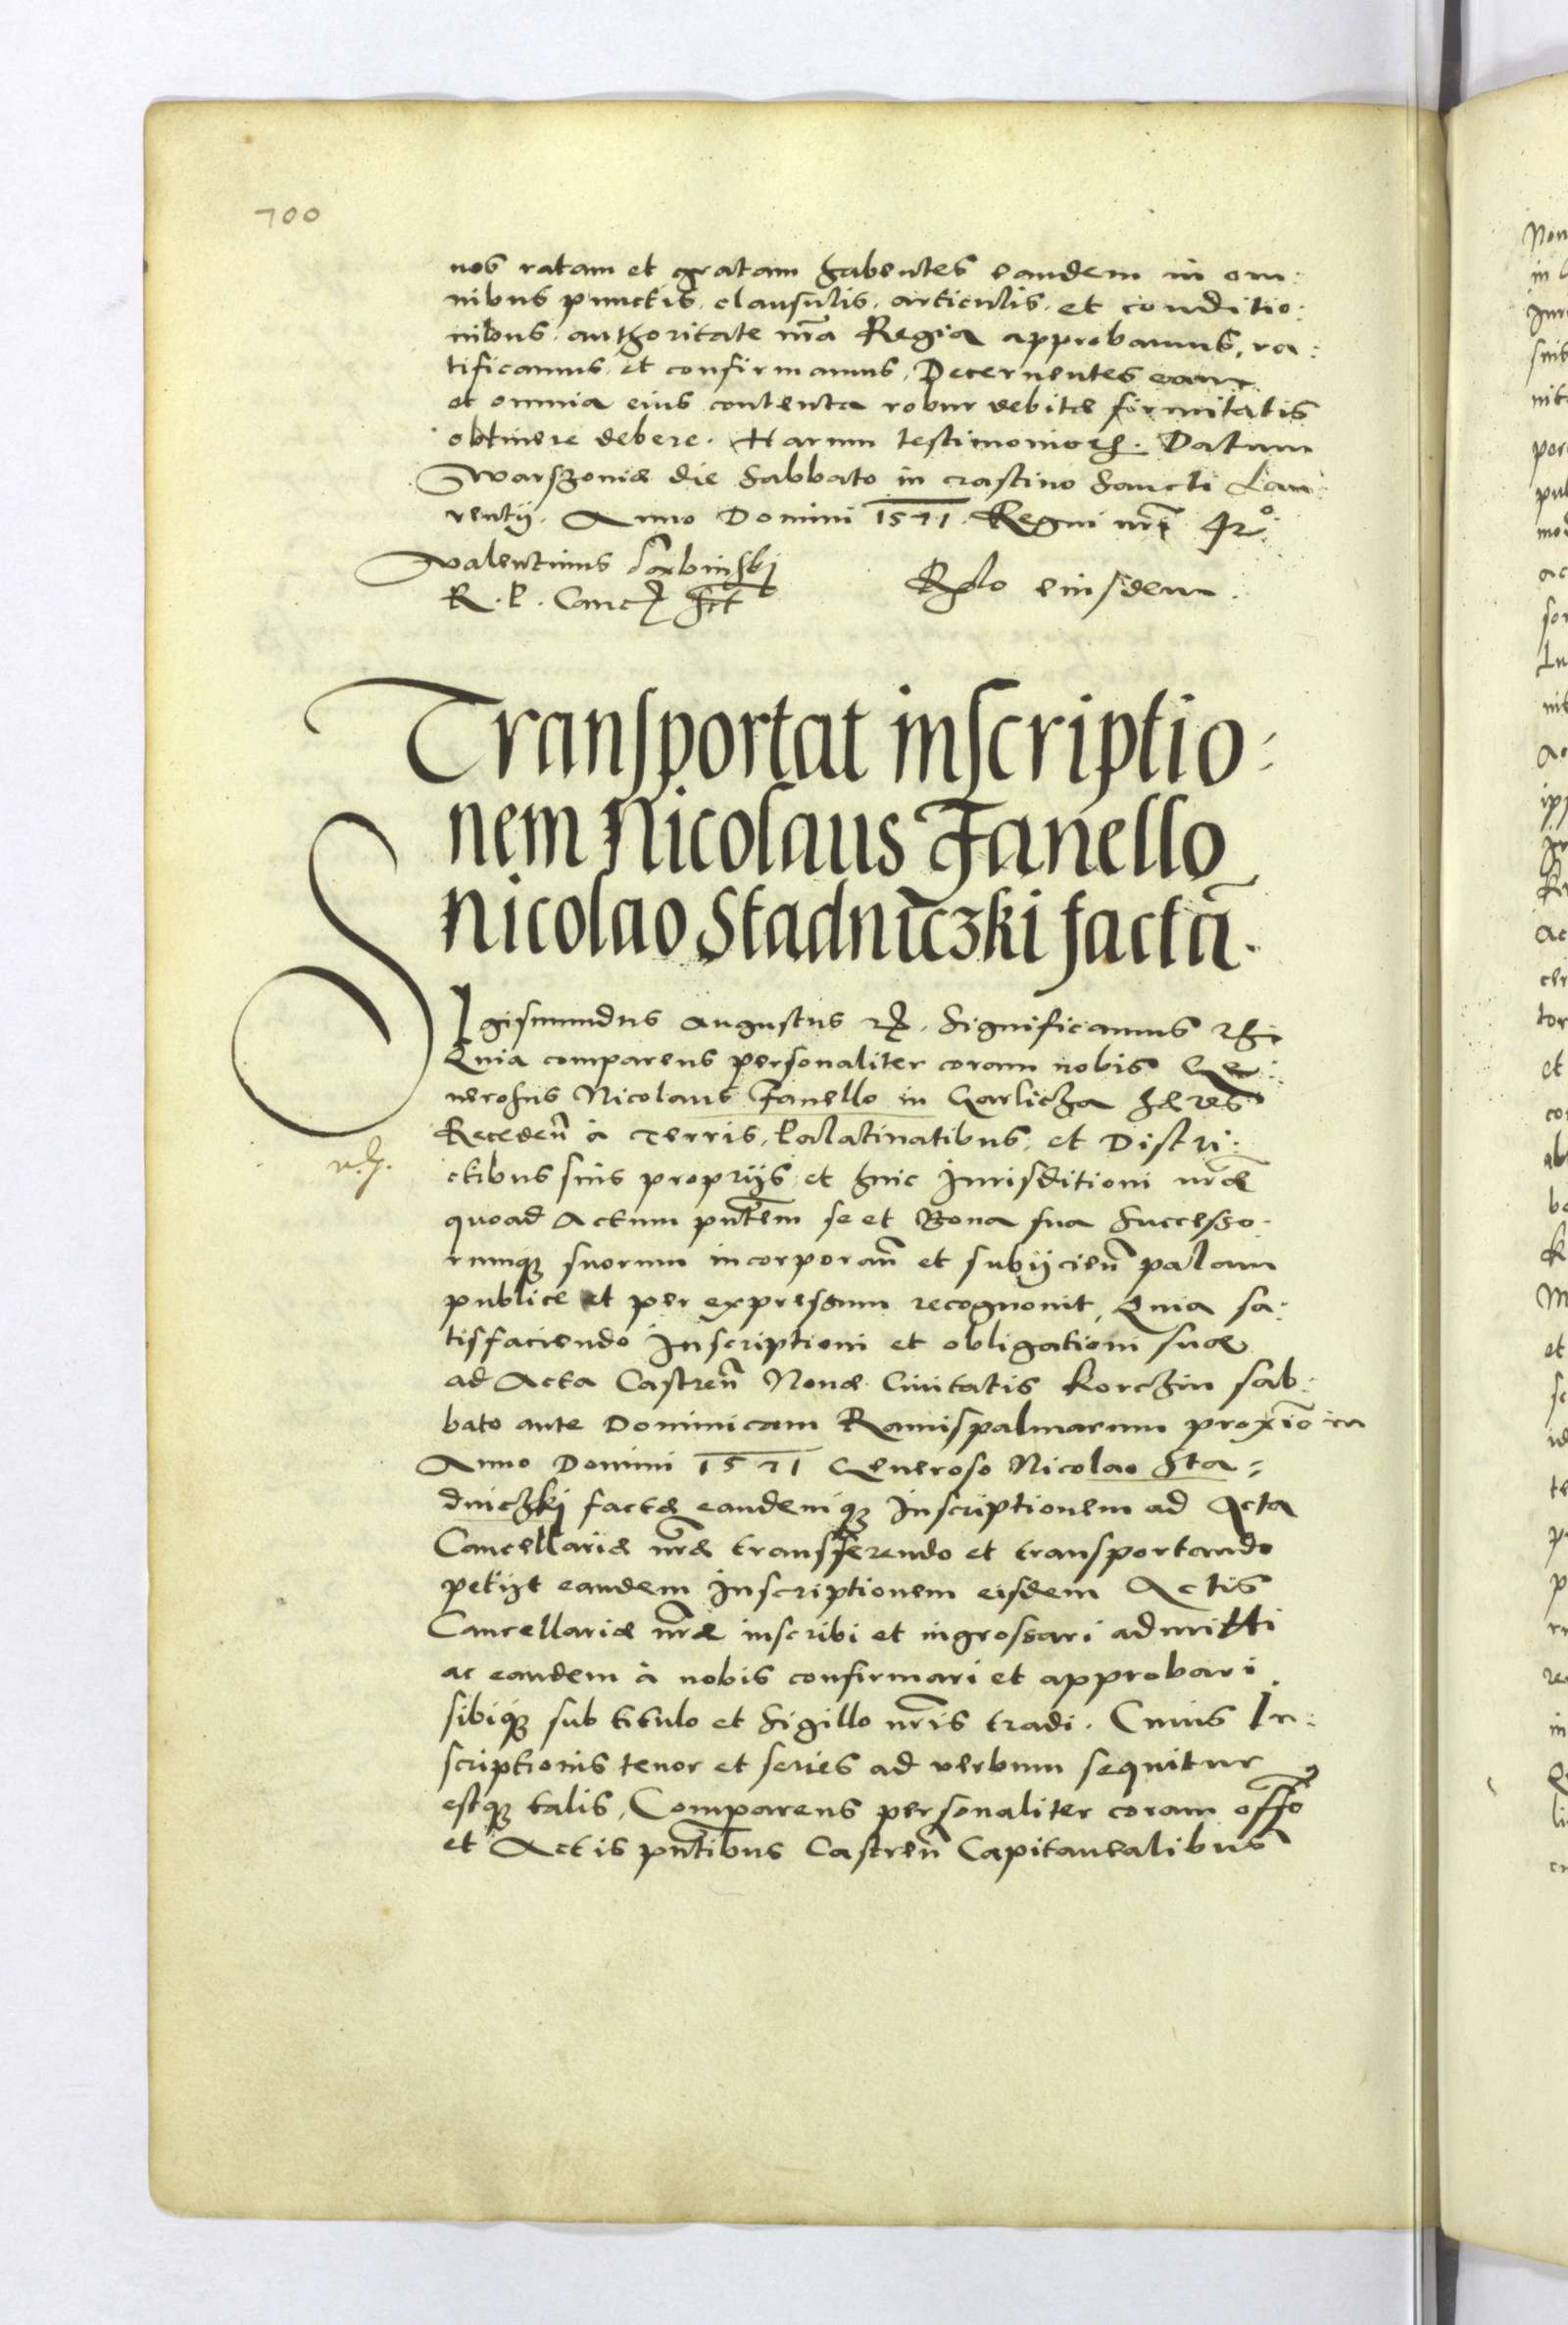 700
nos ratam et gratam habentes eandem in om:
nibus punctis, clausulis, articulis, et conditio:
nibus, authoritate nrã Regia approbamus, ra:
tificamus, et confirmamus, Decernentes eam
et omnia eius contenta robur debitæ firmitatis
obtinere debere. Harum testimonio Datum
Warszoviæ die Sabbato in crastino Sancti Lau:
rentij. Anno Domini 1571. Regni nrĩ 42º.
Valentinus Dąbinskj
R. P. Canc̃ sst
Rełо eiusdem.
Transportat inscriptio:
nem Nicolaus Fanello
Nicolao Stadniczki factã.
Sigismundus Augustus Significamus
Quia comparens personaliter coram nobis Ge:
nerosus Nicolaus Fanello in Garlicza hæres
Receden̄ à Terris, Palatinatibus, et Distri:
ctibus suis proprijs, et huic Jurisditioni nr̃æ
quoad Actum pñtem se et Bona sua Successo:
rumq3 suorum incorporan̄ et subijcien̄ palam
publice et per expressum recognovit, Quia sa:
tisfaciendo Inscriptioni et obligationi suæ
ad Acta Castren̄ Novæ Civitatis Korczin sab:
bato ante Dominicam Ramispalmarum proxĩo in
Anno Domini 1571 Generoso Nicolao Sta=
dniczkj factæ eandemq3 Inscriptionem ad Acta
Cancellariæ nr̃æ transferendo et transportando
petijt eandem Inscriptionem eisdem Actis
Cancellariæ nr̃æ inscribi et ingrossari admitti
ac eandem à nobis confirmari et approbari
sibiq3 sub titulo et Sigillo nr̃is tradi. Cuius In:
scriptionis tenor et series ad verbum sequitur
estq3 talis, Comparens personaliter coram offõ
et Actis pñtibus Castren̄ Capitanealibus